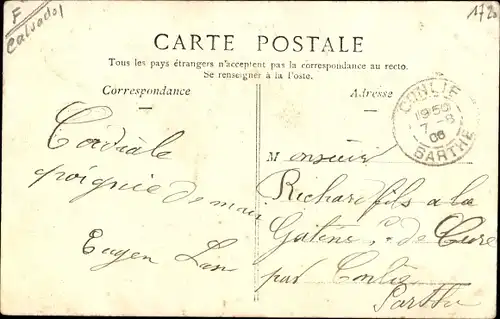 F
Calvados
1720
CARTE POSTALE
Tous les pays étrangers n'acceptent pas la correspondance au recto.
Se renseigner à la Poste.
Correspondance
Adresse
CONLIE
19 50
7-8
06
SARTHE
Cordiale
poignée de main
Eugen
Monsieur
Richard fils a la
de Cure
par Conlie
Sarthe